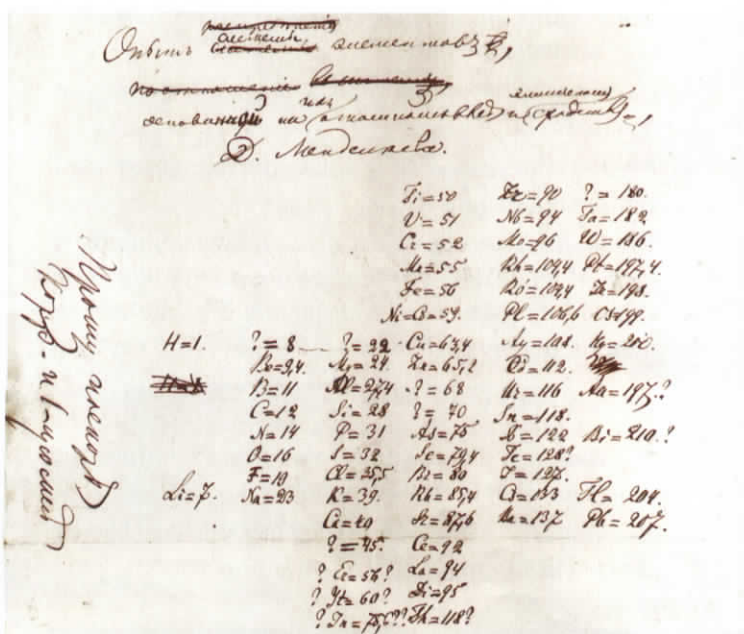 Опытъ системы элементовъ,
основанной на ихъ атомномъ вѣсѣ и химическомъ сходствѣ,
Д. Менделѣева.
Ti=50 Zr=90 ?=180.
V=51 Nb=94 Ta=182
Cr=52 Mo=96 W=186.
Mn=55 Rh=104,4 Pt=197,4.
Fe=56 Ro=104,4 Ir=198.
Ni=Co=59. Pl=106,6 Os=199.
H=1. ?=8 ?=22 Cu=63,4 Ag=108. Hg=200.
Be=9,4 Mg=24 Zn=65,2 Cd=112.
B=11 Al=27,4 ?=68 Ur=116 Au=197?
C=12 Si=28 ?=70 Sn=118.
N=14 P=31 As=75 Sb=122 Bi=210?
O=16 S=32 Se=79,4 Te=128?
F=19 Cl=35,5 Br=80 I=127.
Li=7. Na=23 K=39. Rb=85,4 Cs=133 Tl=204.
Ca=40 Sr=87,6 Ba=137 Pb=207.
?=45. Ce=92
?Er=56? La=94
?Yt=60? Di=95
?In=75,6?? Th=118?
Прошу